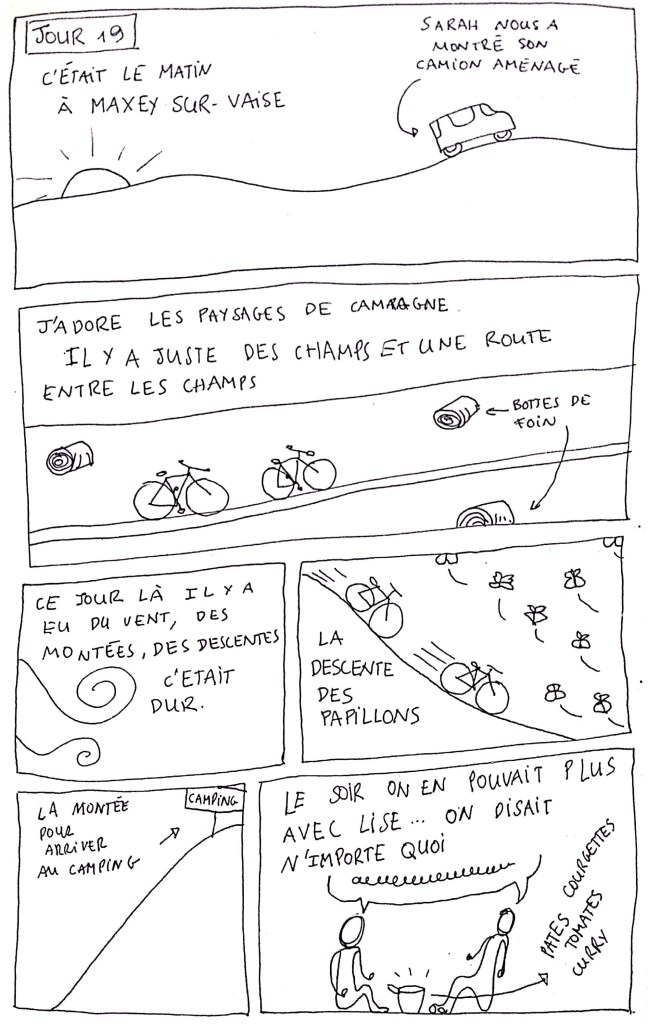 JOUR 19
C'ÉTAIT LE MATIN
À MAXEY SUR-VAISE
SARAH NOUS A
MONTRÉ SON
CAMION AMÉNAGÉ
J'ADORE LES PAYSAGES DE CAMPAGNE.
IL Y A JUSTE DES CHAMPS ET UNE ROUTE
ENTRE LES CHAMPS
BOTTES DE
FOIN
CE JOUR LÀ IL Y A
EU DU VENT, DES
MONTÉES, DES DESCENTES
C'ETAIT
DUR.
LA
DESCENTE
DES
PAPILLONS
LA MONTÉE
POUR
ARRIVER
AU CAMPING
CAMPING
LE SOIR ON EN POUVAIT PLUS
AVEC LISE... ON DISAIT
N'IMPORTE QUOI
PATES COURGETTES
TOMATES
CURRY